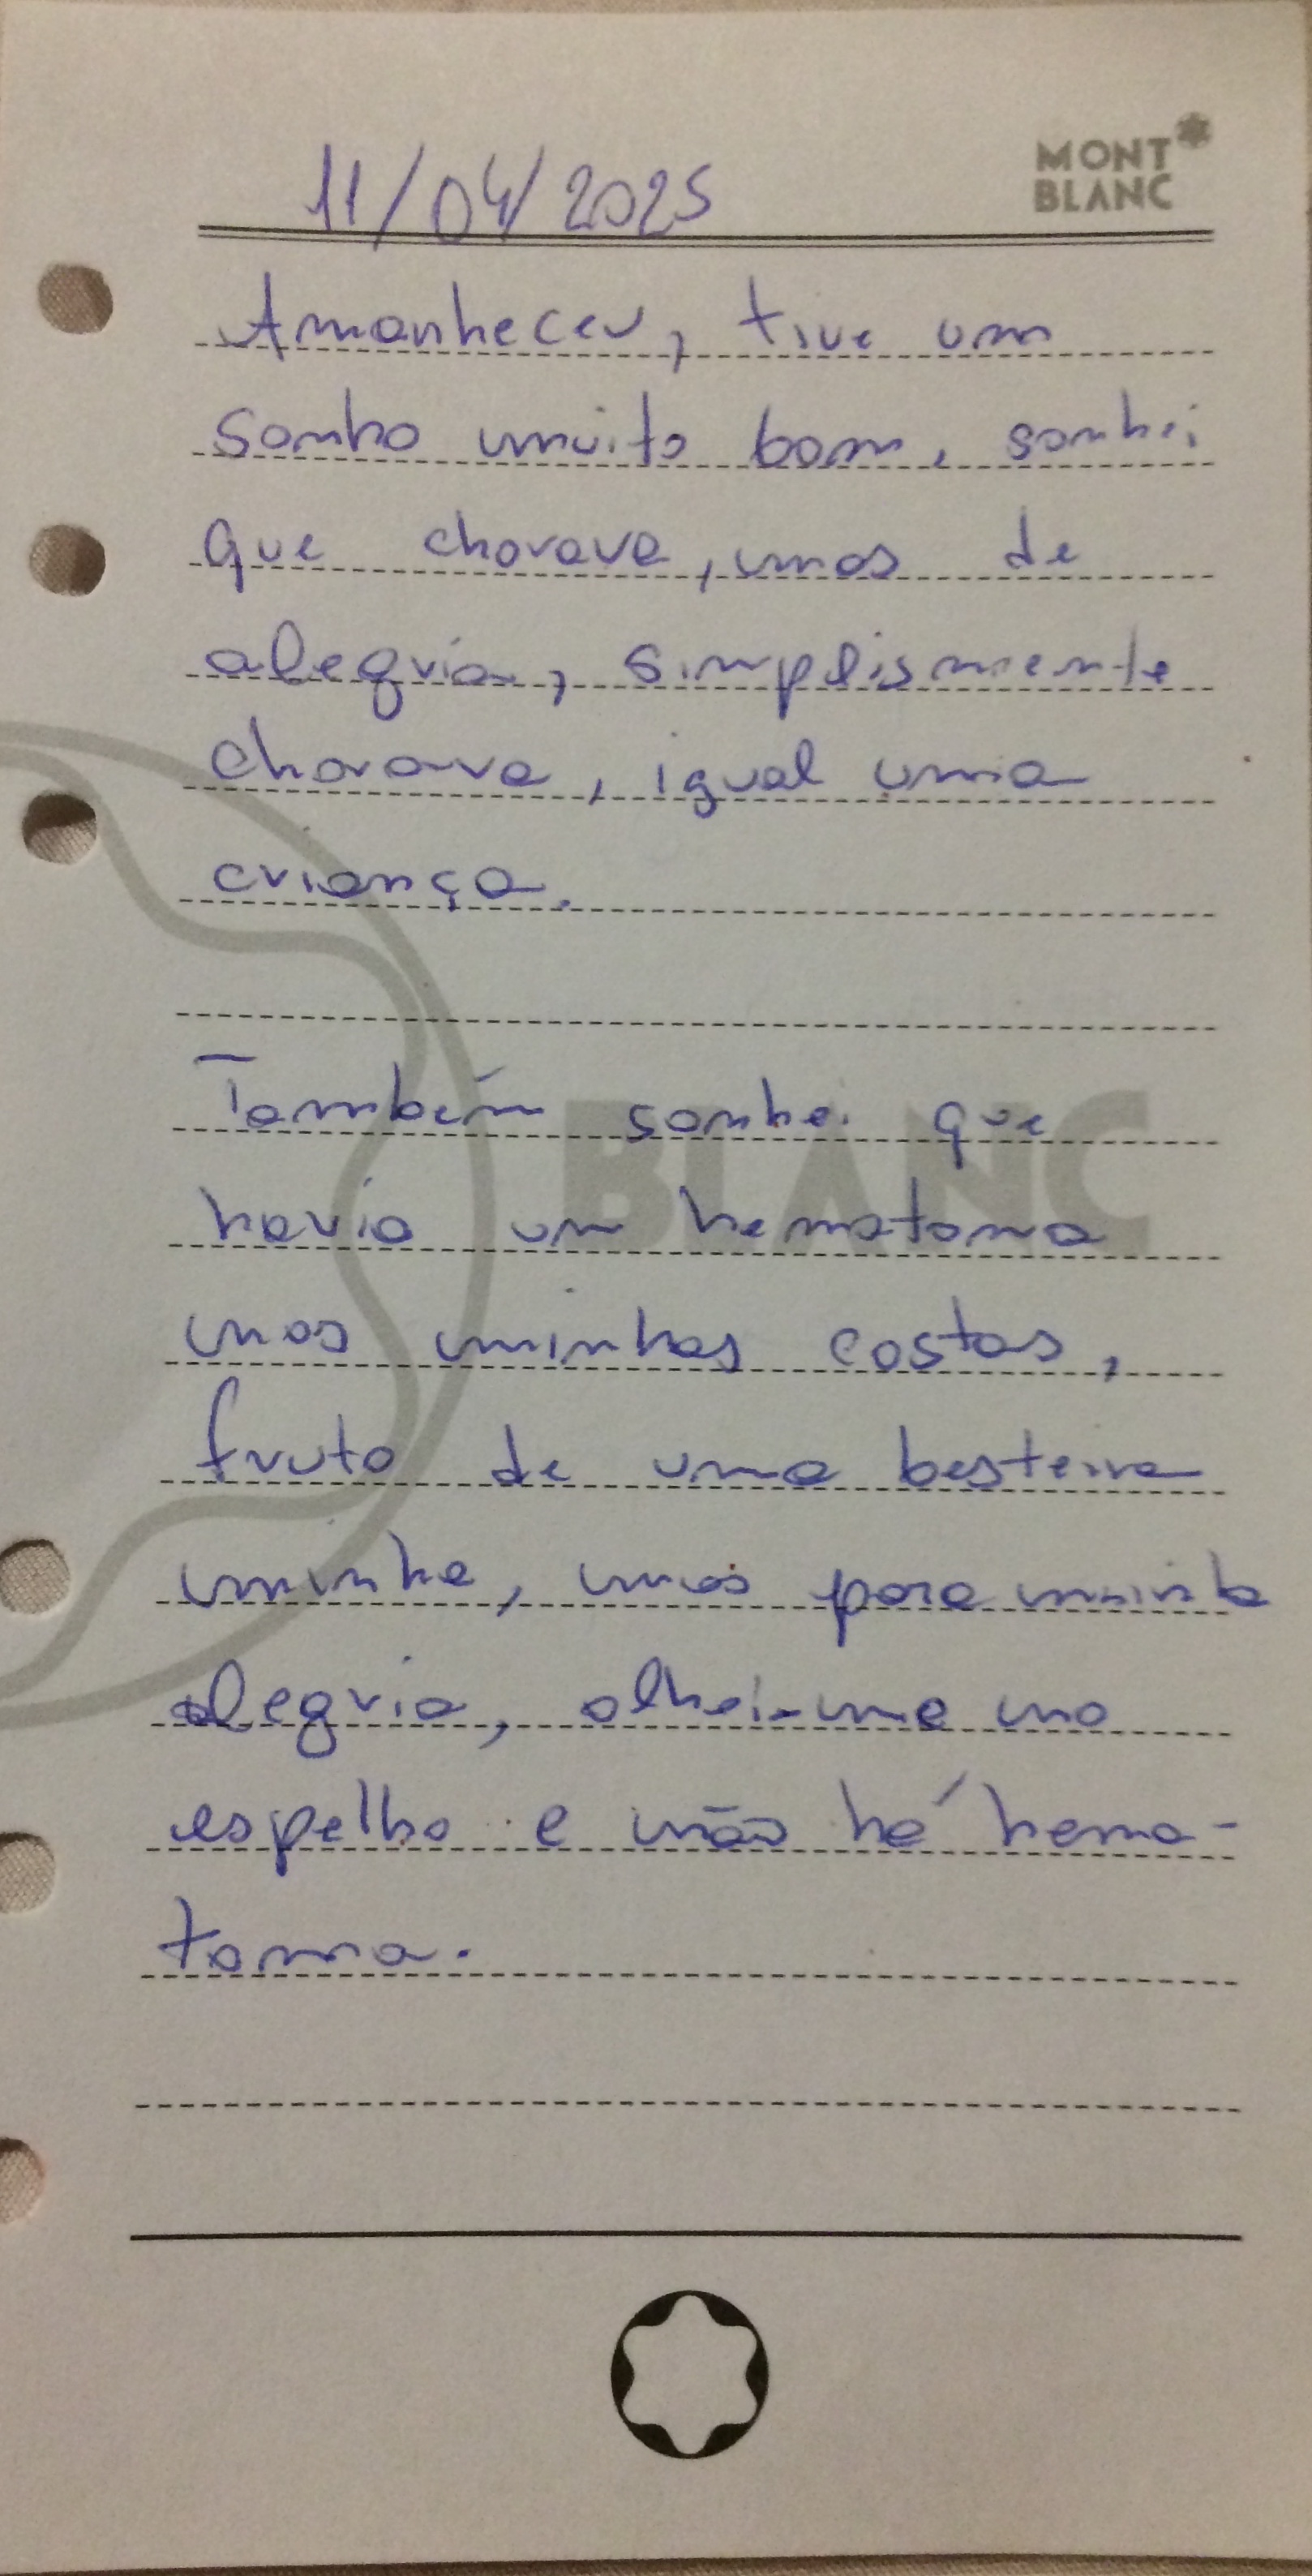 MONT
BLANC
11/04/2025
Amanheceu, tive um
sonho muito bom, sonhei
que chorava, mas de
alegria, simplismente
chorava, igual uma
criança.
Também sonhei que
BLANC
havia um hematoma
nas minhas costas,
fruto de uma besteira
minha, mas para minha
alegria, olhei-me no
espelho e não há hema-
toma.